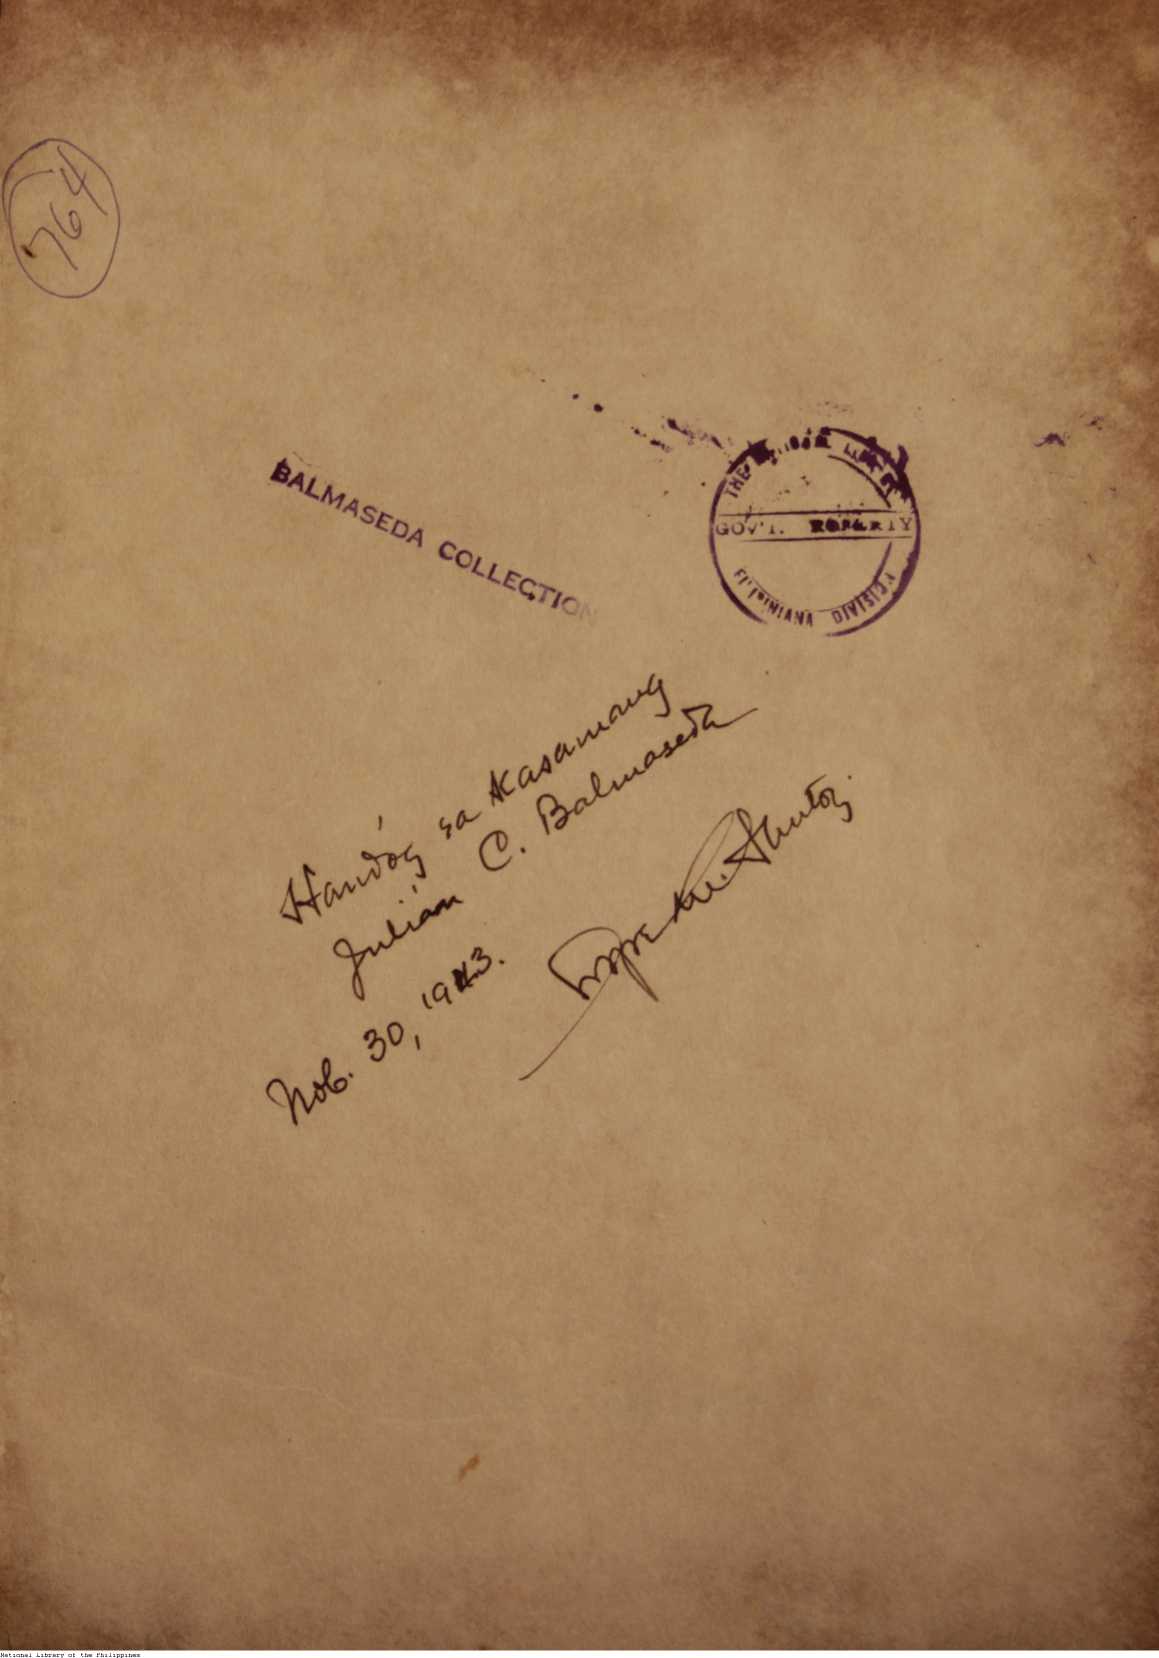 764
BALMASEDA COLLECTION
THE NATIONAL LIBRARY
GOV'T. PROPERTY
FILIPINIANA DIVISION
Handóg sa Kasamang
Julián C. Balmaseda
Lope K. Santos
Nob. 30, 1943.
National Library of the Philippines